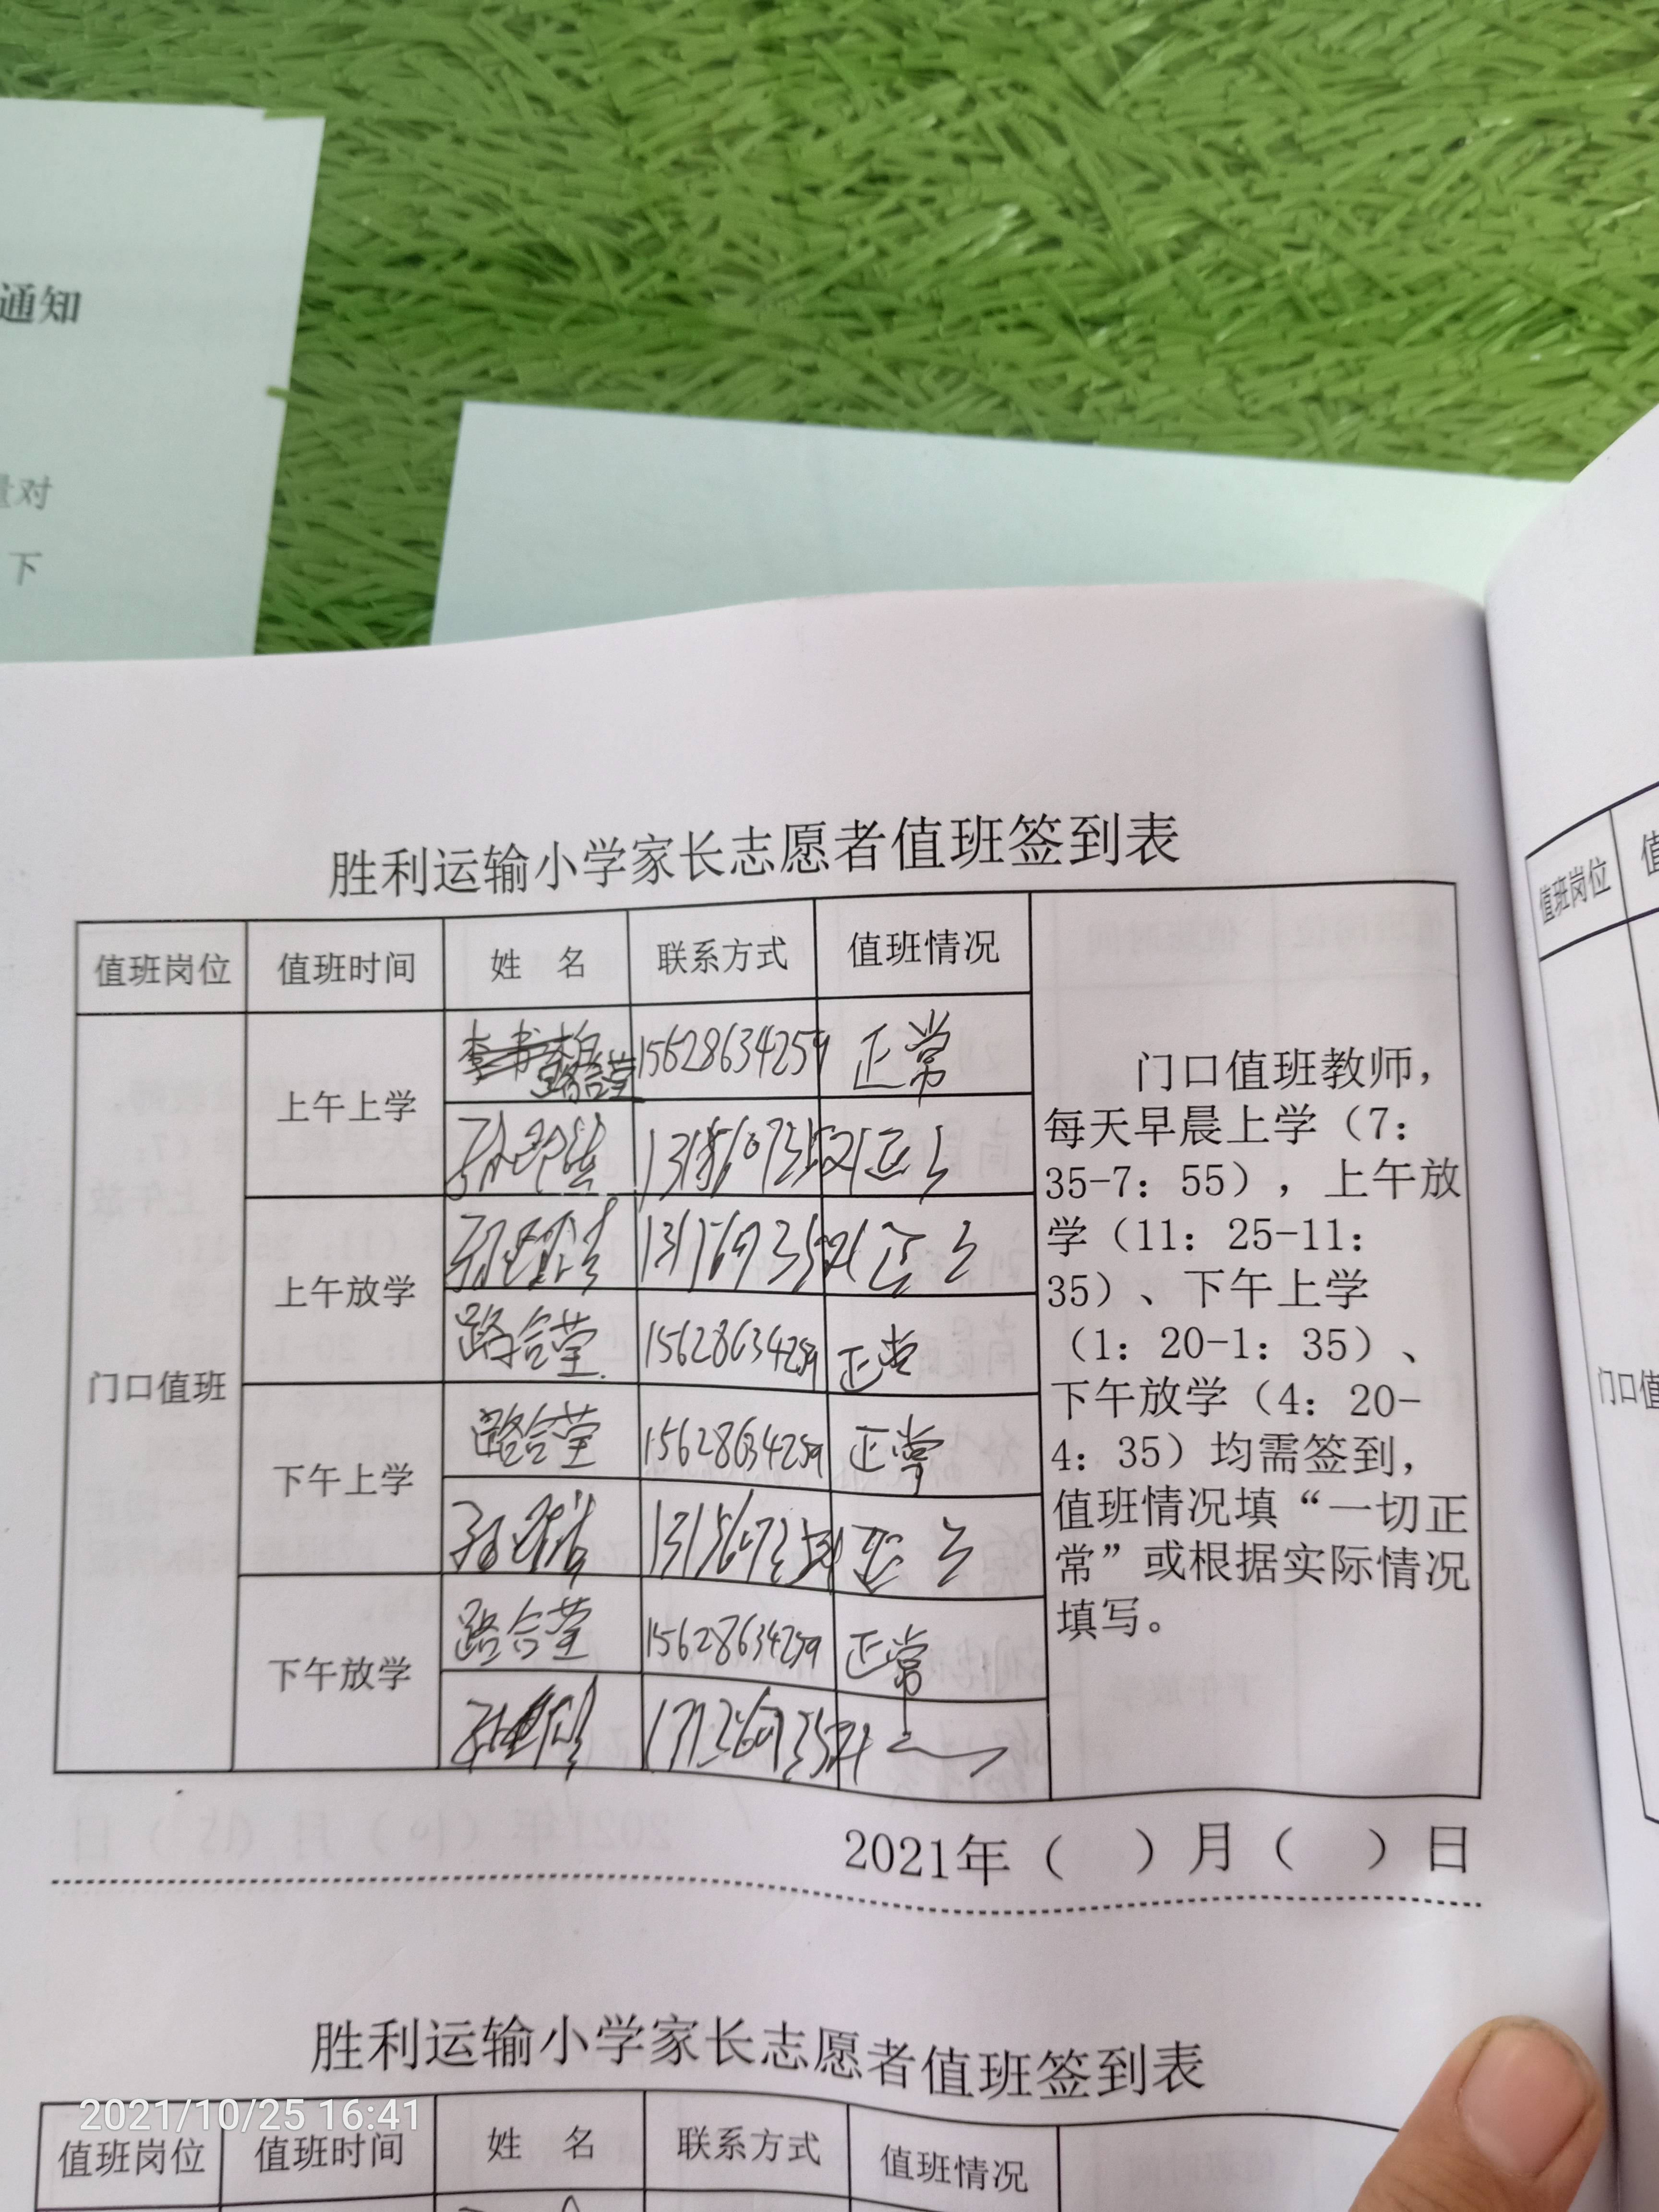 通知
对
下
胜利运输小学家长志愿者值班签到表
值班岗位 值班时间 姓 名 联系方式 值班情况
门口值班
上午上学
路合莹 15628634259 正常
正
上午放学
正
路合莹 15628634259 正常
下午上学
路合莹 15628634259 正常
正
下午放学
路合莹 15628634259 正常
门口值班教师，
每天早晨上学（7：
35-7：55），上午放
学（11：25-11：
35）、下午上学
（1：20-1：35）、
下午放学（4：20-
4：35）均需签到，
值班情况填“一切正
常”或根据实际情况
填写。
2021年（ ）月（ ）日
胜利运输小学家长志愿者值班签到表
值班岗位 值班时间 姓 名 联系方式 值班情况
2021/10/25 16:41
值班岗位 值
门口值